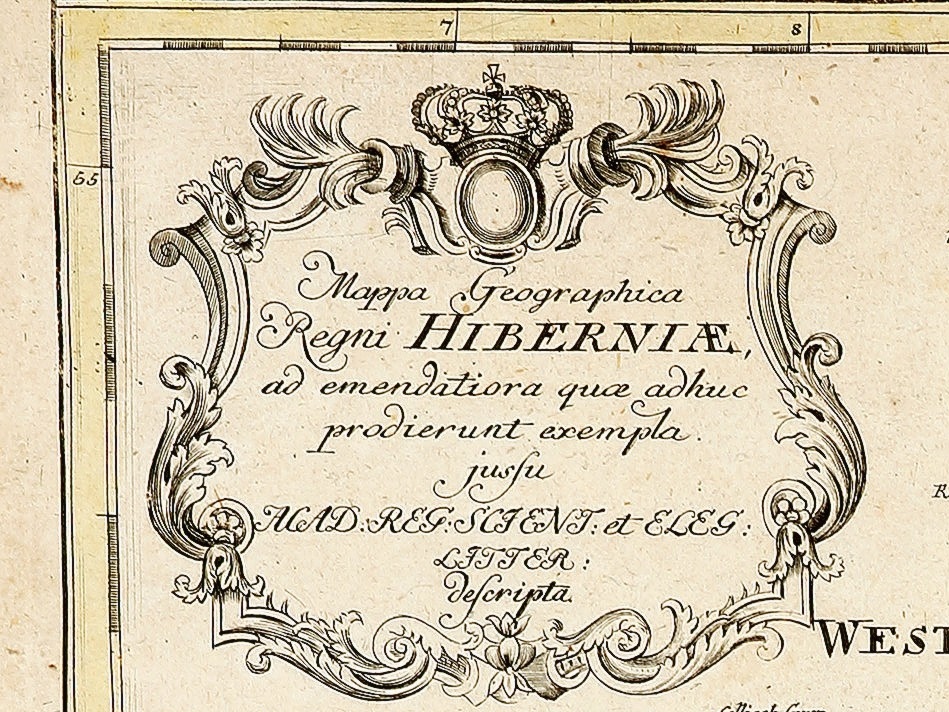 7 8
55
Mappa Geographica
Regni HIBERNIÆ,
ad emendatiora quæ adhuc
prodierunt exempla.
jusſu
ACAD: REG: SCIENT: et ELEG:
LITTER:
deſcripta.
WEST
R